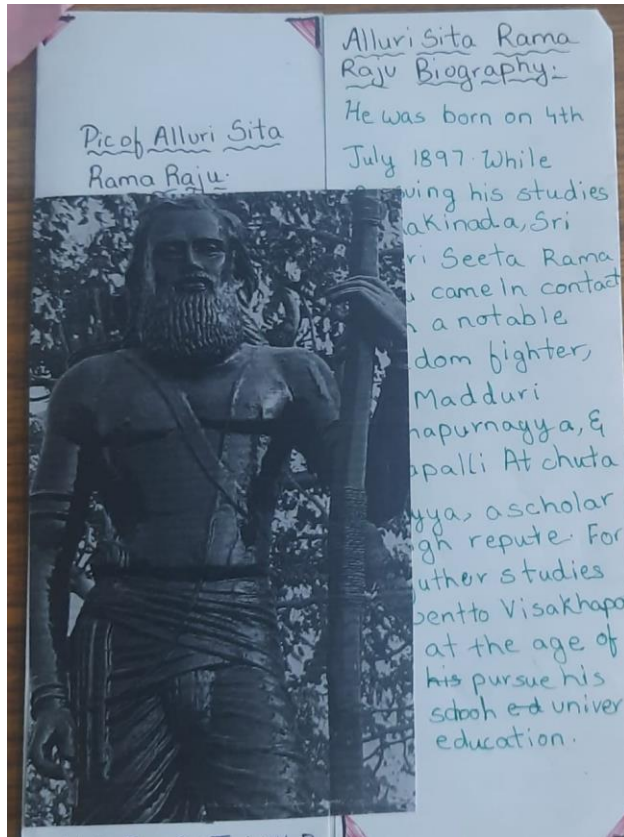 Pic of Alluri Sita
Rama Raju.
Alluri Sita Rama
Raju Biography:-
He was born on 4th
July 1897. While
his studies
Sri
Seeta Rama
came In contact
a notable
fighter,
Madduri
&
At chuta
a scholar
repute. For
studies
to Visakhapa
at the age of
his pursue his
schooh ed univer
education.